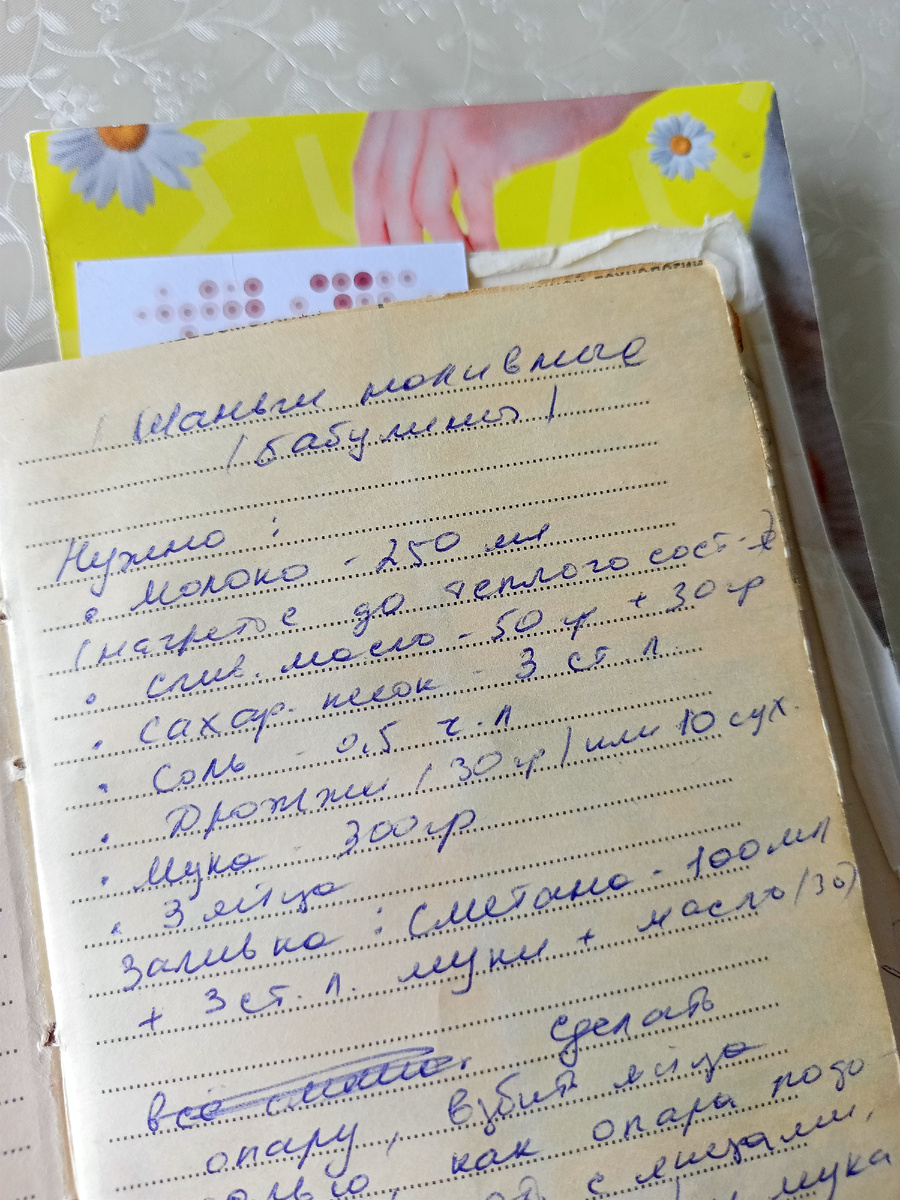 Шаньги наливные
/ Бабулины /
Нужно :
• Молоко - 250 мл
(нагретое до теплого сост-я
• слив. масло - 50 гр + 30 гр
• Сахар. песок - 3 ст. л.
• Соль - 0,5 ч.л
• Дрожжи (30 гр) или 10 сух.
• Мука - 300 гр
• 3 яйца
Заливка : Сметана - 100 мл
+ 3 ст. л. муки + масло (30)
сделать
опару, взбить яйца
солью, как опара подо
с яйцами,
мука